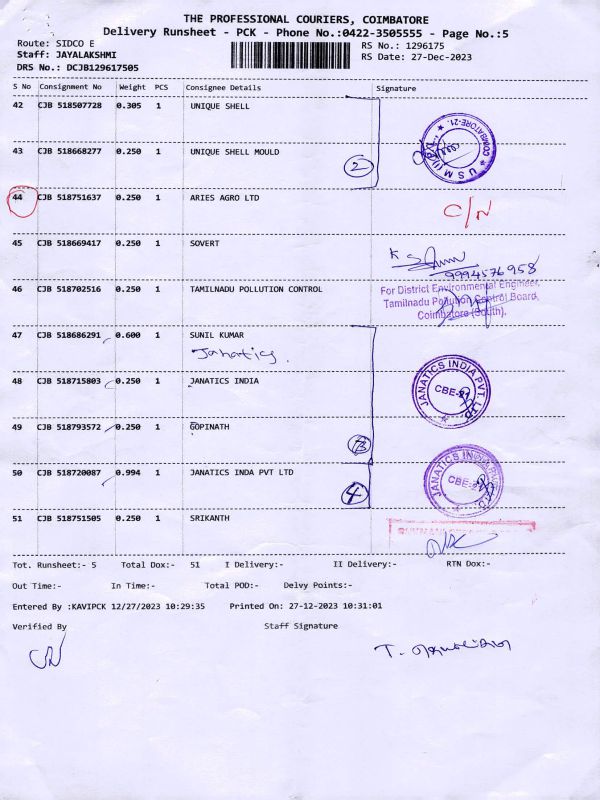 THE PROFESSIONAL COURIERS, COIMBATORE
Delivery Runsheet - PCK - Phone No.:0422-3505555 - Page No.:5
Route: SIDCO E
RS No.: 1296175
Staff: JAYALAKSHMI
RS Date: 27-Dec-2023
DRS No.: DCJB129617505
S No Consignment No Weight PCS Consignee Details Signature
42 CJB 518507728 0.305 1 UNIQUE SHELL
43 CJB 518668277 0.250 1 UNIQUE SHELL MOULD
2
COIMBATORE-21. USM (I)
44 CJB 518751637 0.250 1 ARIES AGRO LTD
C/N
45 CJB 518669417 0.250 1 SOVERT
9994576958
46 CJB 518702516 0.250 1 TAMILNADU POLLUTION CONTROL
For District Environmental Engineer,
Tamilnadu Pollution Control Board,
Coimbatore (South).
47 CJB 518686291 0.600 1 SUNIL KUMAR
Janatics.
48 CJB 518715803 0.250 1 JANATICS INDIA
JANATICS INDIA PVT. LTD
CBE-21
49 CJB 518793572 0.250 1 GOPINATH
50 CJB 518720087 0.994 1 JANATICS INDA PVT LTD
4
JANATICS INDIA
CBE-21
51 CJB 518751505 0.250 1 SRIKANTH
Tot. Runsheet:- 5 Total Dox:- 51 I Delivery:- II Delivery:- RTN Dox:-
Out Time:- In Time:- Total POD:- Delvy Points:-
Entered By :KAVIPCK 12/27/2023 10:29:35 Printed On: 27-12-2023 10:31:01
Verified By Staff Signature